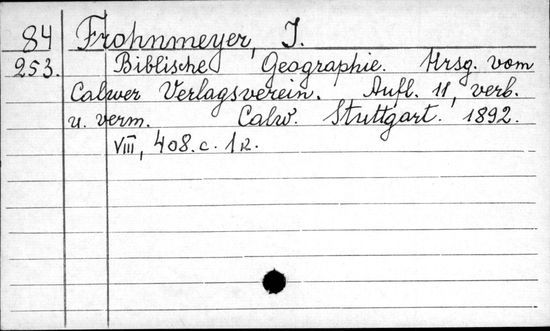 84 Frohnmeyer, J.
253. Biblische Geographie. Hrsg. vom
Calwer Verlagsverein. Aufl. 11, verb.
u. verm. Calw. Stuttgart. 1892.
VIII, 408.c. 1к.